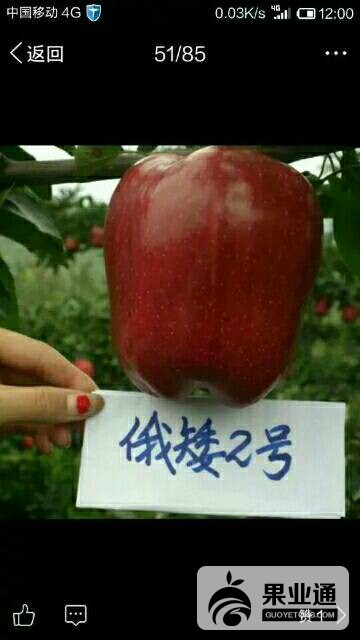 中国移动 4G 0.03K/s 4G 12:00
返回 51/85 ...
俄矮2号
果业通
GUOYETONG.COM
赞 1